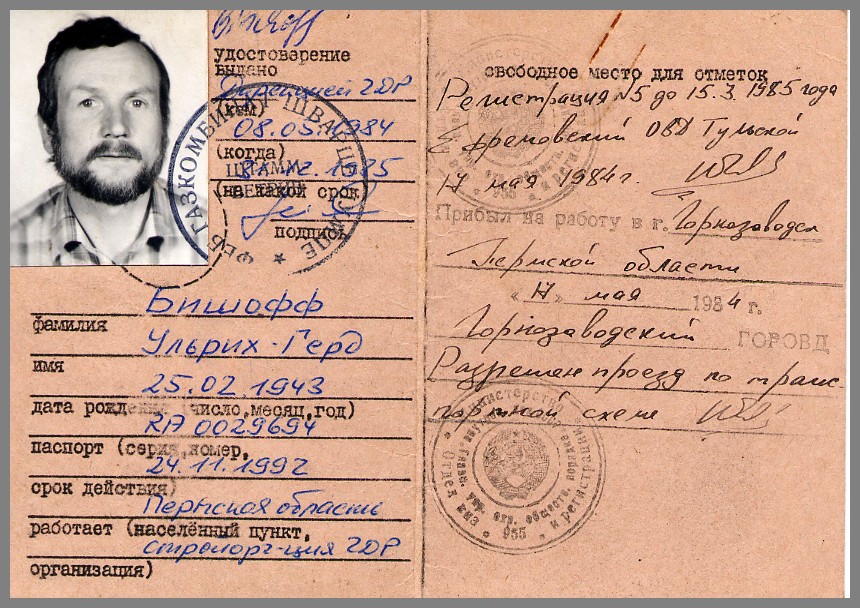 Bischoff
удостоверение
выдано
Дирекцией ГДР
(кем)
08.05.1984
(когда)
31.12.1985
(на какой срок)
подпись
ФЕБ ГАЗКОМБИНАТ ШВАРЦЕ ПУМПЕ
ШТАММ
Бишофф
фамилия
Ульрих-Герд
имя
25.02.1943
дата рождения (число, месяц, год)
RA 0029694
паспорт (серия, номер,
24.11.1992
срок действия)
Пермская область
работает (населённый пункт,
стройорг-ция ГДР
организация)
свободное место для отметок
Регистрация №5 до 15.3.1985 года
Ефремовский ОВД Тульской
17 мая 1984г.
Прибыл на работу в г. Горнозаводск
Пермской области
"17" мая 1984 г.
Горнозаводский ГОРОВД
Разрешен проезд по транс-
портной схеме
министерство
955
и регистрац